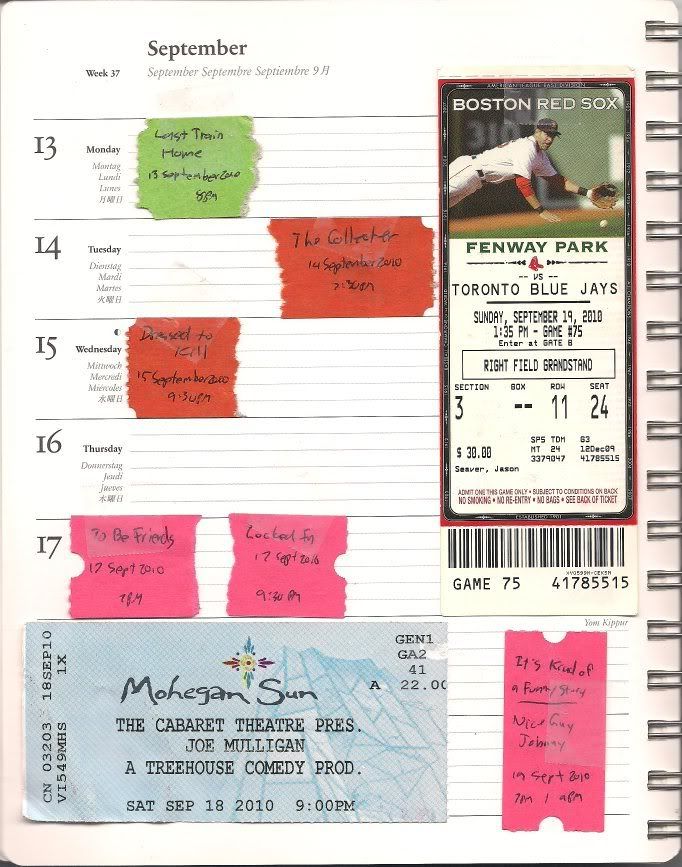 September
Week 37
September Septembre Septiembre 9月
13
Monday
Montag
Lundi
Lunes
月曜日
Last Train
Home
13 September 2010
8PM
14
Tuesday
Dienstag
Mardi
Martes
火曜日
The Collector
14 September 2010
7:30PM
15
Wednesday
Mittwoch
Mercredi
Miércoles
水曜日
Dressed to
Kill
15 September 2010
9:30PM
16
Thursday
Donnerstag
Jeudi
Jueves
木曜日
17
To Be Friends
17 Sept 2010
7PM
Locked In
17 Sept 2010
9:30 PM
AMERICAN LEAGUE EAST DIVISION
BOSTON RED SOX
FENWAY PARK
-- VS --
TORONTO BLUE JAYS
SUNDAY, SEPTEMBER 19, 2010
1:35 PM - GAME #75
Enter at GATE B
RIGHT FIELD GRANDSTAND
SECTION BOX ROW SEAT
3 -- 11 24
$ 30.00
SPS TDM G3
MT 24 12Dec09
3379047 41785515
Seaver, Jason
ADMIT ONE THIS GAME ONLY • SUBJECT TO CONDITIONS ON BACK
NO SMOKING • NO RE-ENTRY • NO BAGS • SEE BACK OF TICKET
ESTABLISHED 1901
GAME 75 41785515
Yom Kippur
CN 03203 18SEP10
VI549MHS 1X
GEN1
GA2
41
A 22.00
Mohegan Sun
THE CABARET THEATRE PRES.
JOE MULLIGAN
A TREEHOUSE COMEDY PROD.
SAT SEP 18 2010 9:00PM
It's Kind of
a Funny Story
Nice Guy
Johnny
19 Sept 2010
7PM | 9PM